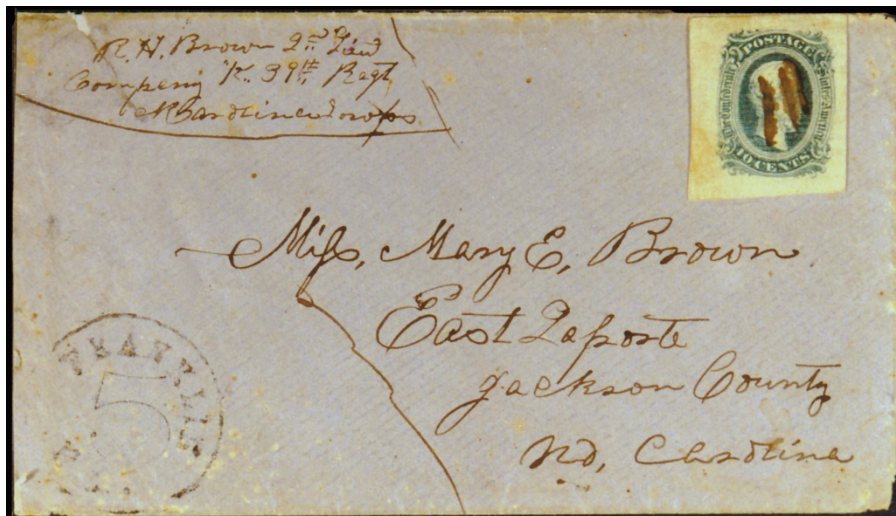 R. H. Brown 2nd Lieu
Company K. 39th Regt
N Carolina Troops
POSTAGE
The Confederate States America
10 CENTS
Miss, Mary E, Brown
East Laporte
Jackson County
No, Carolina
FRANKLIN
5